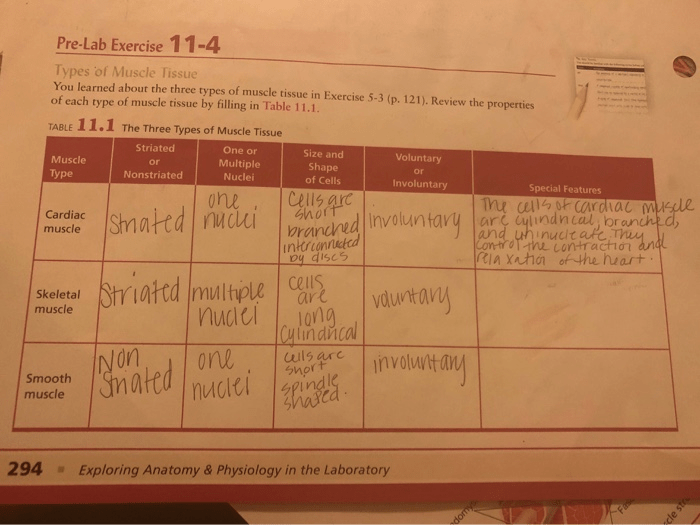 Pre-Lab Exercise 11-4
Types of Muscle Tissue
You learned about the three types of muscle tissue in Exercise 5-3 (p. 121). Review the properties
of each type of muscle tissue by filling in Table 11.1.
TABLE 11.1 The Three Types of Muscle Tissue
Muscle
Type
Striated
or
Nonstriated
One or
Multiple
Nuclei
Size and
Shape
of Cells
Voluntary
or
Involuntary
Special Features
Cardiac
muscle
Striated
one
nuclei
Cells are
short
branched
interconnected
by discs
involuntary
The cells of cardiac muscle
are cylindrical, branched,
and uninucleate. They
control the contraction and
relaxation of the heart.
Skeletal
muscle
Striated
multiple
nuclei
cells
are
long
cylindrical
voluntary
Smooth
muscle
Non
Striated
one
nuclei
cells are
short
spindle
shaped.
involuntary
294 Exploring Anatomy & Physiology in the Laboratory